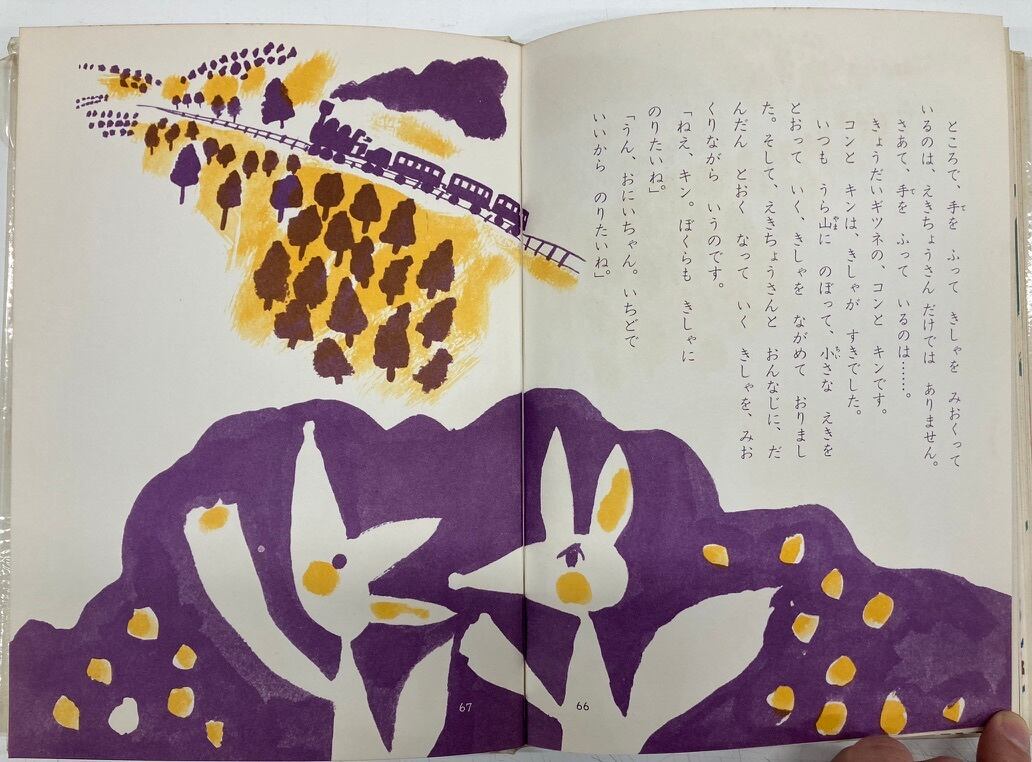 ところで、手を ふって きしゃを みおくって
いるのは、えきちょうさん だけでは ありません。
さあて、手を ふって いるのは……。
きょうだいギツネの、コンと キンです。
コンと キンは、きしゃが すきでした。
いつも うら山に のぼって、小さな えきを
とおって いく、きしゃを ながめて おりまし
た。そして、えきちょうさんと おんなじに、だ
んだん とおく なって いく きしゃを、みお
くりながら いうのです。
「ねえ、キン。ぼくらも きしゃに
のりたいね」
「うん、おにいちゃん。いちどで
いいから のりたいね。」
66
67